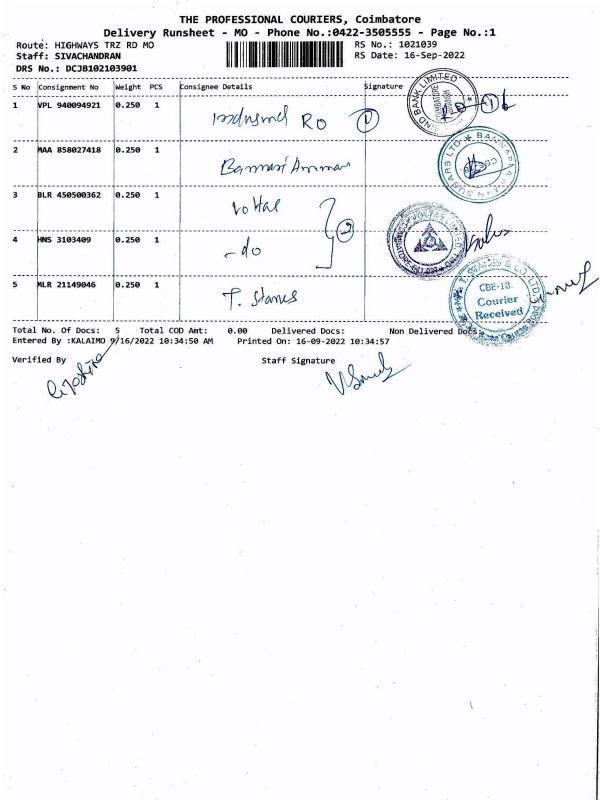 THE PROFESSIONAL COURIERS, Coimbatore
Delivery Runsheet - MO - Phone No.:0422-3505555 - Page No.:1
Route: HIGHWAYS TRZ RD MO RS No.: 1021039
Staff: SIVACHANDRAN RS Date: 16-Sep-2022
DRS No.: DCJB102103901
S No Consignment No Weight PCS Consignee Details Signature
1 VPL 940094921 0.250 1 RO 1
2 MAA 858027418 0.250 1 Bannari Amman
3 BLR 450500362 0.250 1
2
4 HNS 3103409 0.250 1 - do
5 MLR 21149046 0.250 1 T. Stanes
IND BANK LIMITED
SUGARS LTD
CBE-18.
Courier
Received
Total No. Of Docs: 5 Total COD Amt: 0.00 Delivered Docs: Non Delivered Docs:
Entered By :KALAIMO 9/16/2022 10:34:50 AM Printed On: 16-09-2022 10:34:57
Verified By Staff Signature